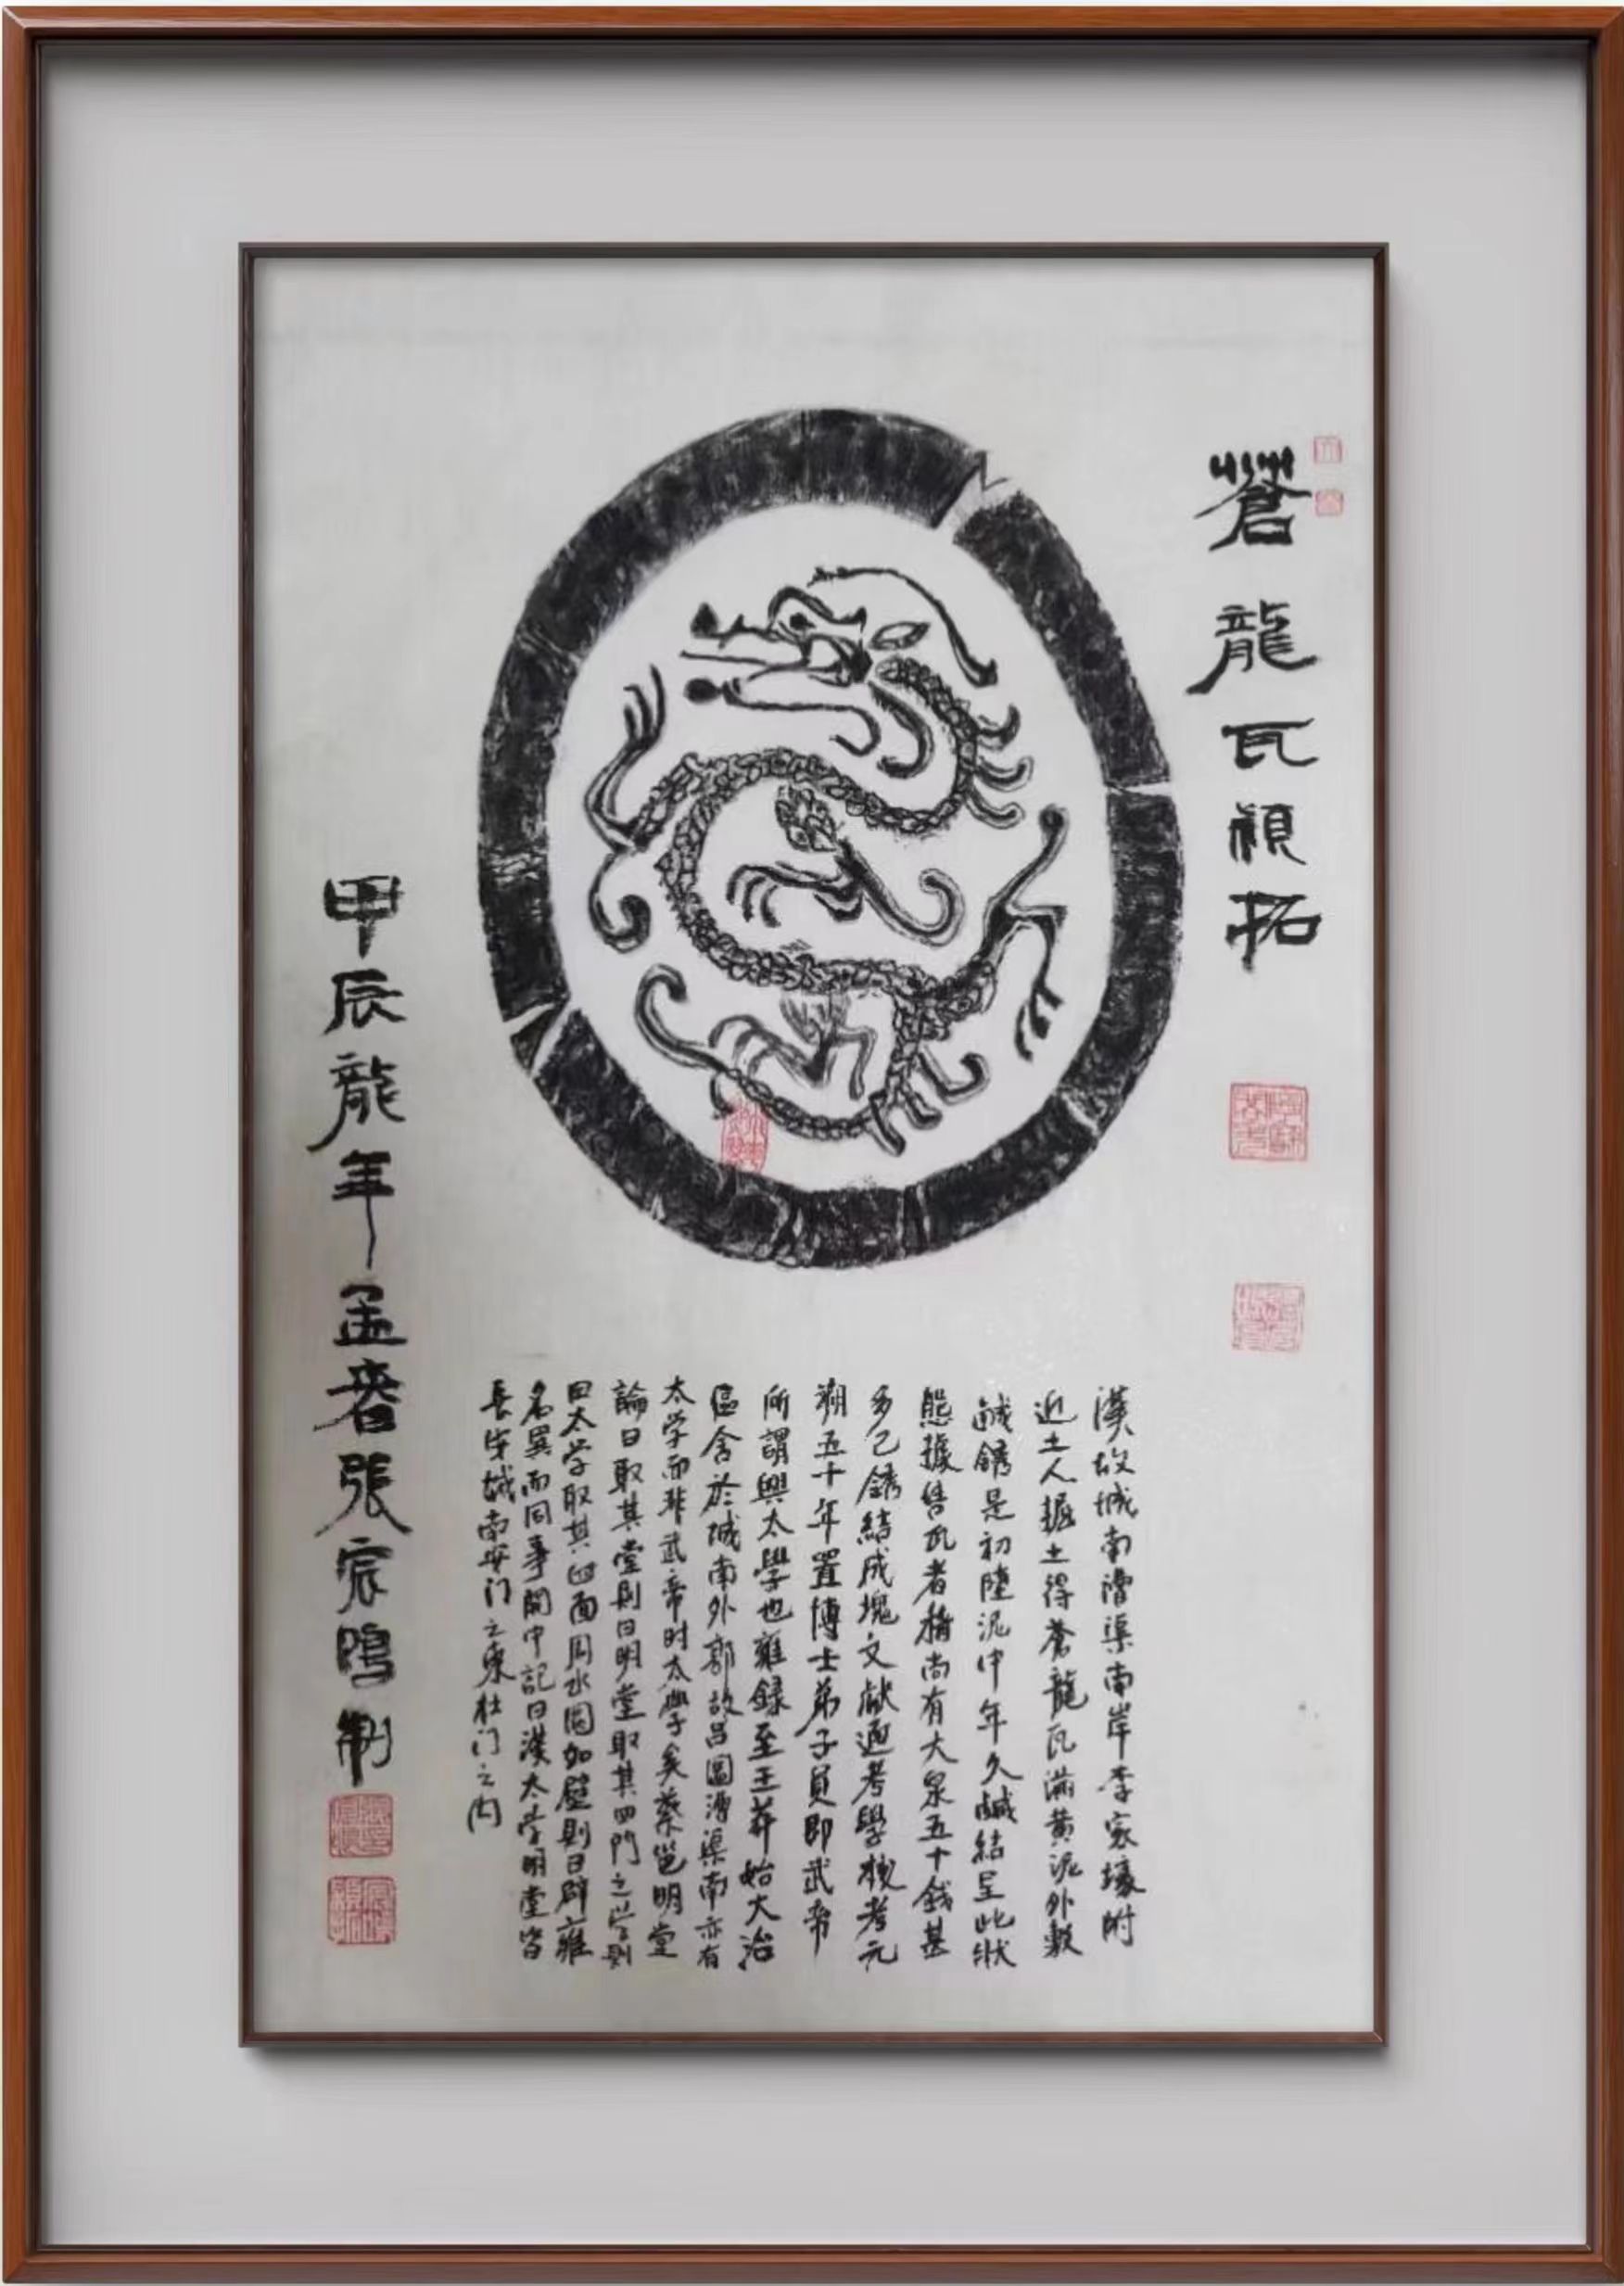 蒼龍瓦額拓
漢故城南漕渠南岸李家壕附
近土人掘土得蒼龍瓦滿黄泥外敷
鹹銹是初陸泥中年久鹹結呈此狀
態據售瓦者稱尚有大泉五十錢甚
多已銹結成塊文献通考學校考元
朔五十年置博士弟子員即武帝
所謂興太學也雍録至王莽始大治
區舍於城南外郭故吕圖漕渠南亦有
太学而非武帝时太學矣蔡邕明堂
論曰取其堂則曰明堂取其四門之学則
曰太学取其四面周水圓如壁則曰辟雍
名異而同事関中記曰漢太学明堂皆
長安城南安门之東杜门之内
甲辰龍年孟春張宸鳴制